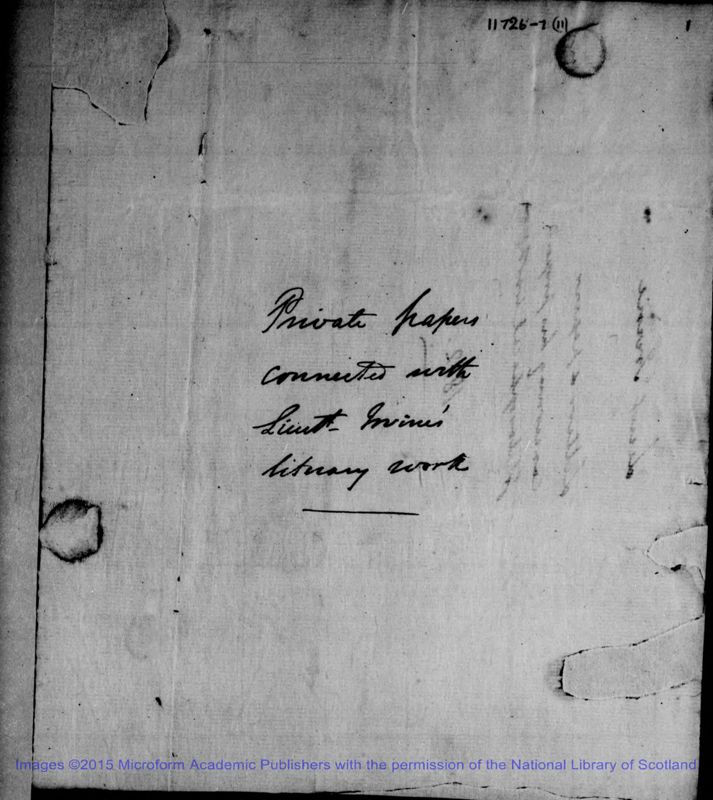 11726-7 (11)
1
Private papers
connected with
Lieutt. Irvine's
literary work
Images ©2015 Microform Academic Publishers with the permission of the National Library of Scotland.